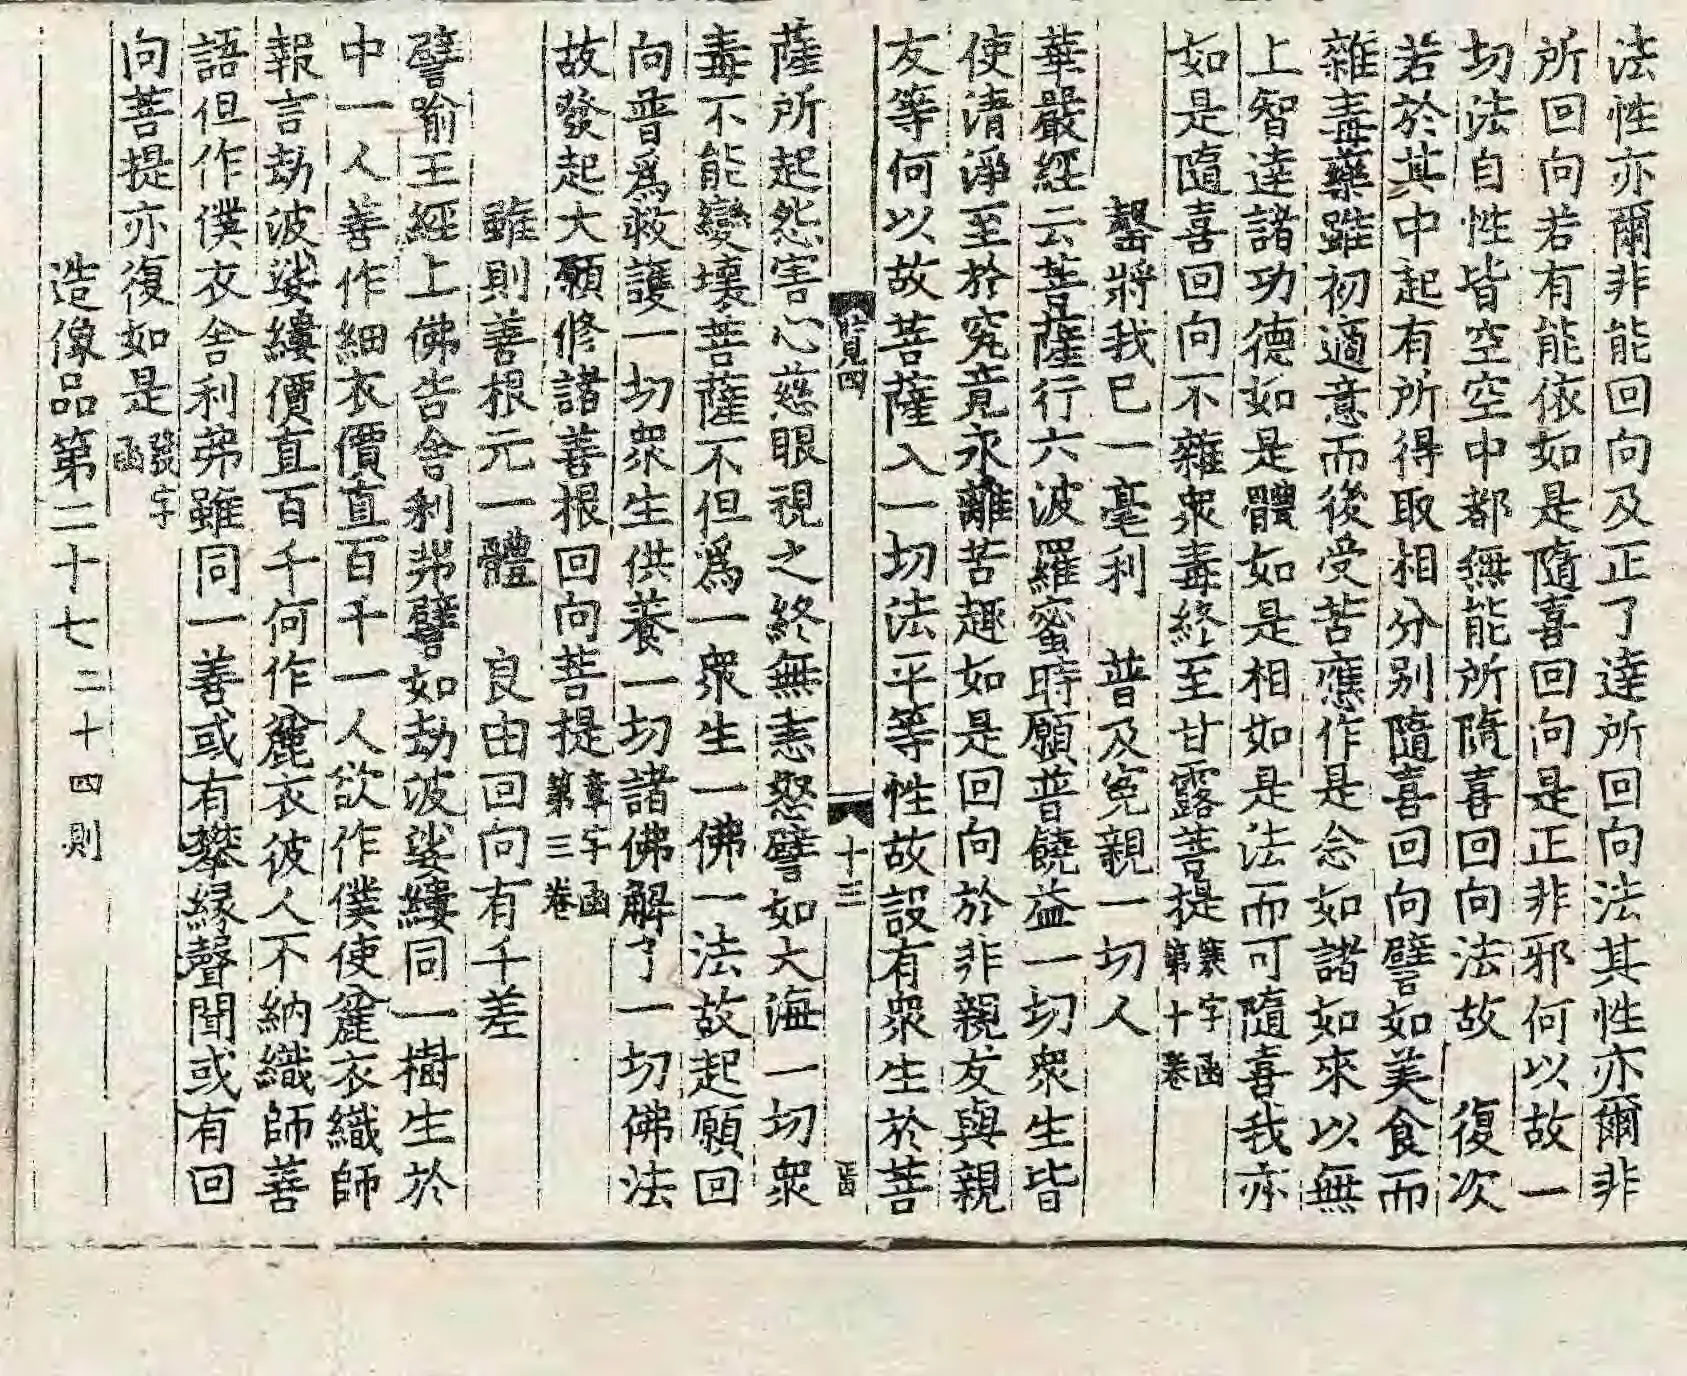 法性亦爾非能回向及正了達所回向法其性亦爾非
所回向若有能依如是隨喜回向是正非邪何以故一
切法自性皆空空中都無能所隨喜回向法故　復次
若於其中起有所得取相分别隨喜回向譬如美食而
雜毒藥雖初適意而後受苦應作是念如諸如來以無
上智達諸功德如是體如是相如是法而可隨喜我亦
如是隨喜回向不雜衆毒終至甘露菩提
第十卷
罄將我已一毫利　普及寃親一切人
華嚴經云菩薩行六波羅蜜時願普饒益一切衆生皆
使清淨至於究竟永離苦趣如是回向於非親友與親
友等何以故菩薩入一切法平等性故設有衆生於菩
十三
薩所起怨害心慈眼視之終無恚怒譬如大海一切衆
毒不能變壞菩薩不但爲一衆生一佛一法故起願回
向普爲救護一切衆生供養一切諸佛解了一切佛法
故發起大願修諸善根回向菩提章字函第三卷
雖則善根元一體　良由回向有千差
譬喻王經上佛告舍利弗譬如劫波娑縷同一樹生於
中一人善作細衣價直百千一人欲作僕使麄衣織師
報言劫波娑縷價直百千何作麄衣彼人不納織師善
語但作僕衣舍利弗雖同一善或有攀緣聲聞或有回
向菩提亦復如是發字函
造像品第二十七二十四則